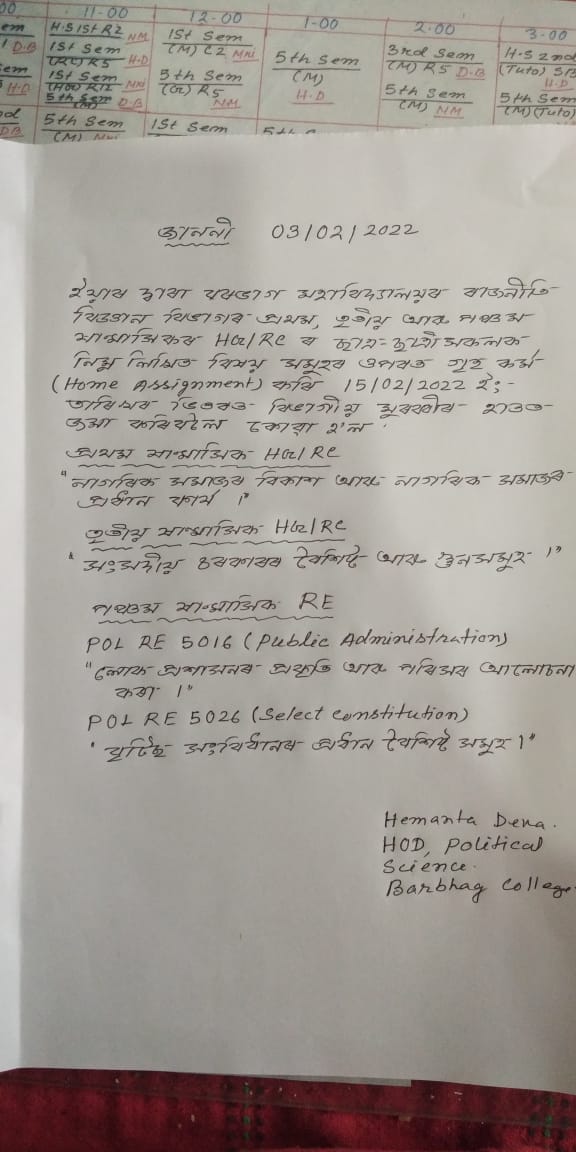 00 11-00 12-00 1-00 2-00 3-00
em H.S 1st R2 NM 1st Sem 3rd Sem H.S 2nd
D.B 1st Sem (M) C2 Mni 5th Sem (M) R5 D.B (Tuto)
(RC) R5 H.D (M)
Sem 1st Sem 5th Sem 5th Sem H.D
H.D Mni (Ge) R5 H.D (M) NM 5th Sem
5th Sem D.B NM (M)(Tuto)
5th Sem 1st Sem
DB (M)
জাননী 03/02/2022
ইয়াৰ দ্বাৰা বৰভাগ মহাবিদ্যালয়ৰ ৰাজনীতি
বিজ্ঞান বিভাগৰ প্ৰথম, তৃতীয় আৰু পঞ্চম
ষান্মাসিকৰ HG/RC ৰ ছাত্ৰ-ছাত্ৰী সকলক
নিম্ন লিখিত বিষয় সমূহৰ ওপৰত গৃহ কৰ্ম
(Home Assignment) কৰি 15/02/2022 ইং-
তাৰিখৰ ভিতৰত বিভাগীয় মুৰব্বীৰ হাতত
জমা কৰিবলৈ কোৱা হ'ল
প্ৰথম ষান্মাসিক HG/RC
"নাগৰিক সমাজৰ বিকাশ আৰু নাগৰিক সমাজৰ
প্ৰধান কাৰ্য ।"
তৃতীয় ষান্মাসিক HG/RC
"সংসদীয় চৰকাৰৰ বৈশিষ্ট আৰু গুনসমূহ ।"
পঞ্চম ষান্মাসিক RE
POL RE 5016 (Public Administration)
"লোক প্ৰশাসনৰ প্ৰকৃতি আৰু পৰিসৰ আলোচনা
কৰা ।"
POL RE 5026 (Select constitution)
"বৃটিছ সংবিধানৰ প্ৰধান বৈশিষ্ট সমূহ ।"
Hemanta Deka.
HOD, Political
Science.
Barbhag College.